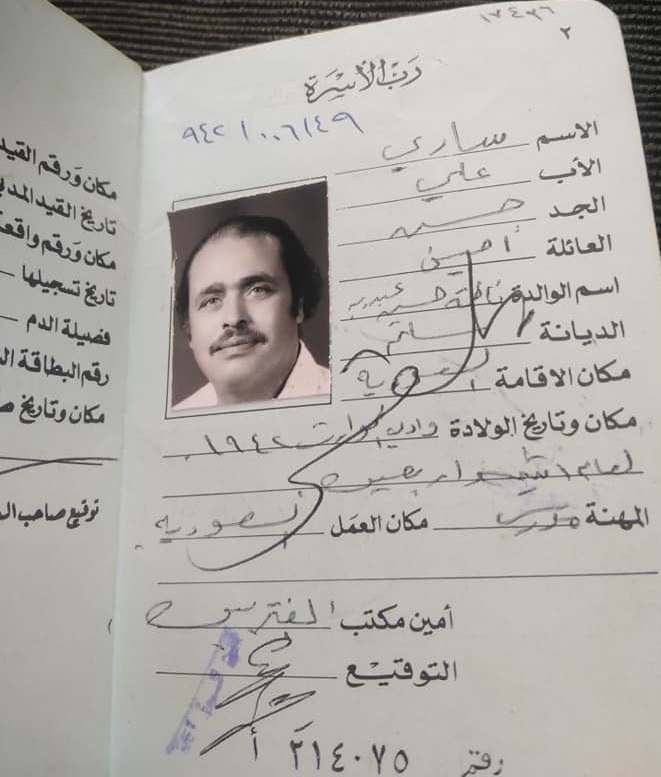 ١٧٤٣٦
٢
رَبّ الأُسْرَة
٩٤٢١٠٠٦١٤٩
الاسم ساري
الأب علي
الجد حسين
العائلة أمين
اسم الوالدة حسن
الديانة مسلم
مكان الاقامة السعودية
مكان وتاريخ الولادة وادي الحوارث ١٩٤٢
لعام اثنين واربعين
المهنة مدرس مكان العمَل السعودية
أمين مكتب
التوقيْع
رقم ٢١٤٠٧٥ أ
مكان وَرقم القيد
تاريخ القيد المدني
مكان وَرقم واقعة
تاريخ تسجيلها
فصيلة الدم
رقم البطاقة
مكان وتاريخ
توقيع صاحب